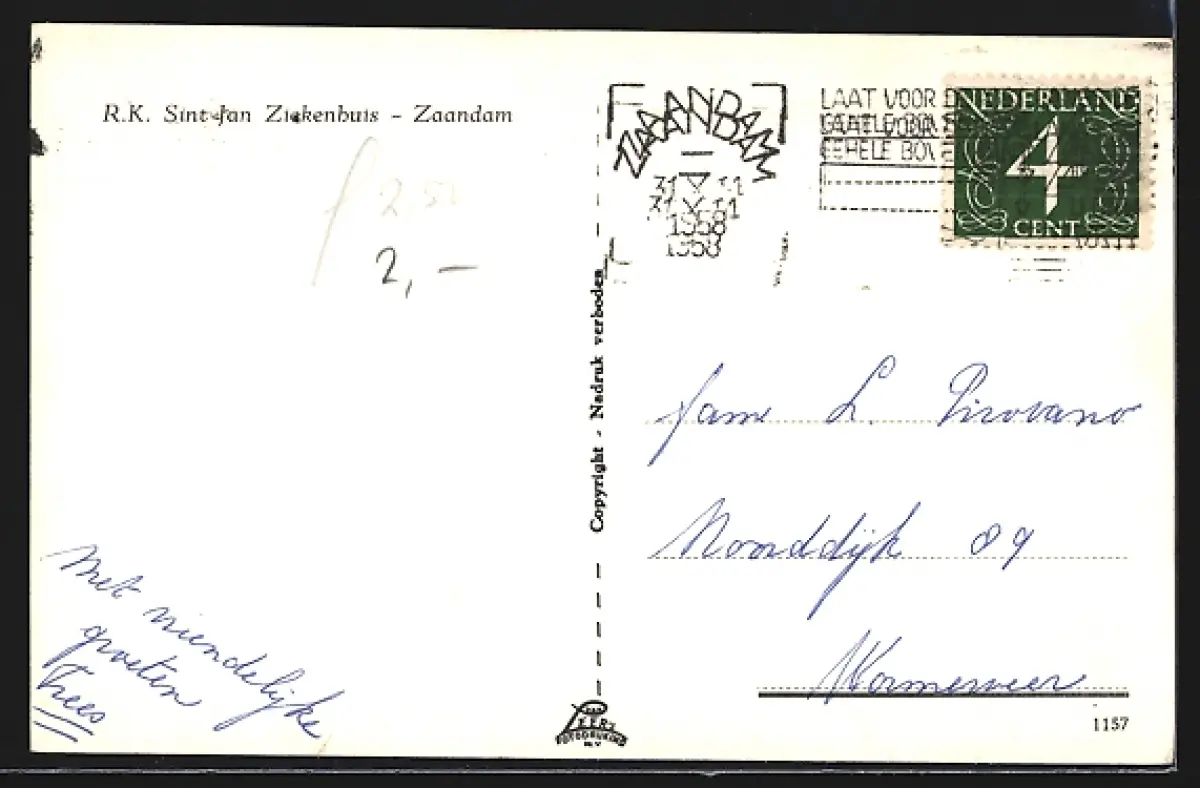 R.K. Sint Jan Ziekenhuis - Zaandam
2,50
2, —
ZAANDAM
31 V 11
1958
1958
LAAT VOOR
GEHELE BOV
NEDERLAND
4
CENT
Copyright - Nadruk verboden
fam L. Pirovano
Noorddijk 89
Wormerveer
Met vriendelijke
groeten
Trees
VAN LEER'S
FOTODRUKIND
N.V.
1157